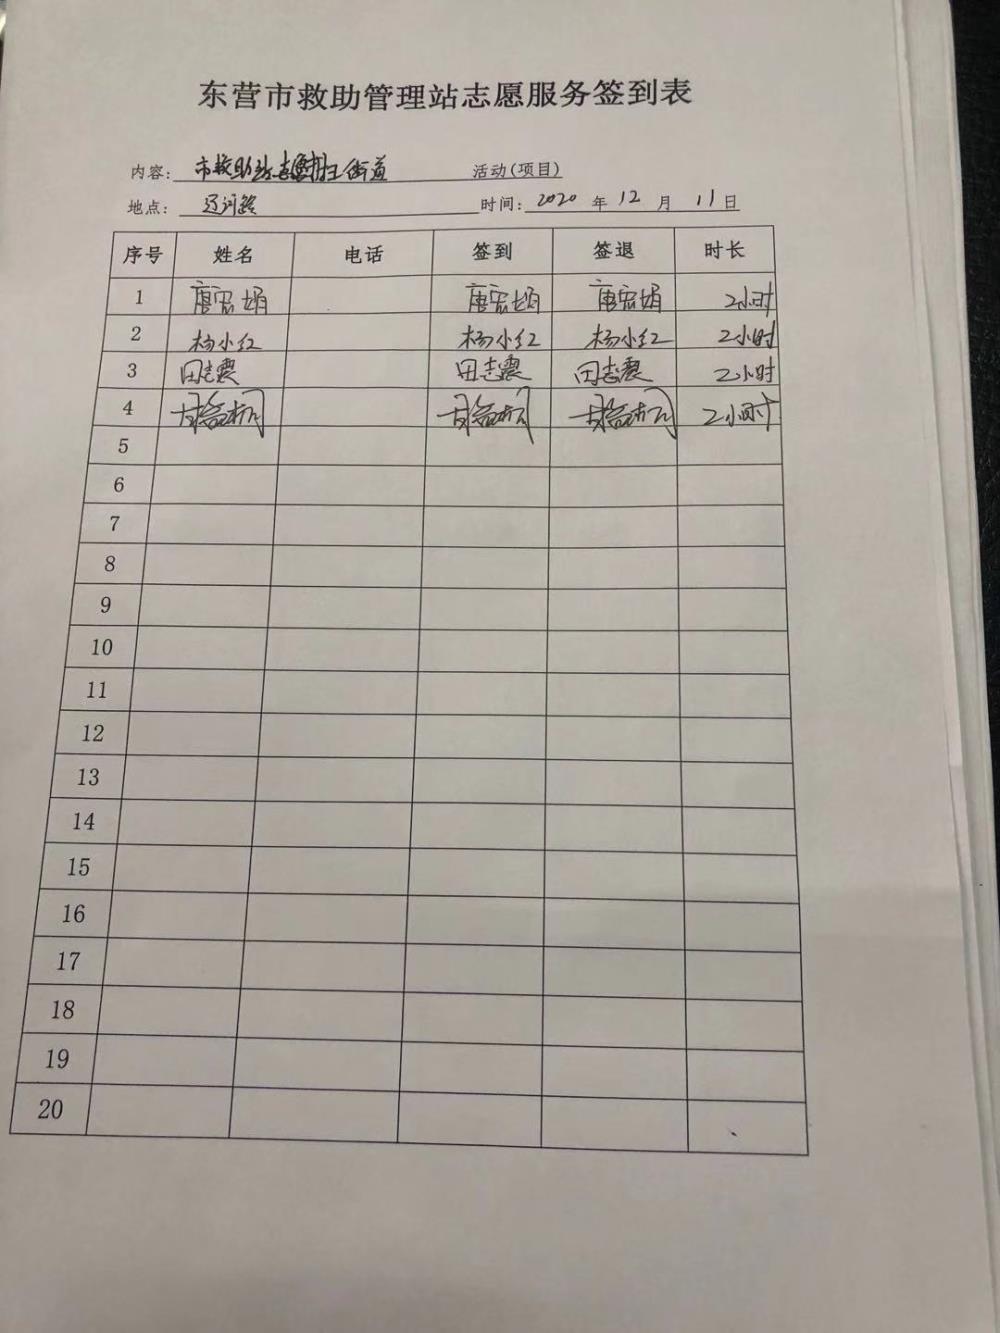 东营市救助管理站志愿服务签到表
内容: 市救助站志愿 街道 活动(项目)
地点: 辽河路 时间: 2020 年 12 月 11 日
序号 姓名 电话 签到 签退 时长
1 唐宏娟 唐宏娟 唐宏娟 2小时
2 杨小红 杨小红 杨小红 2小时
3 田志震 田志震 田志震 2小时
4 2小时
5
6
7
8
9
10
11
12
13
14
15
16
17
18
19
20